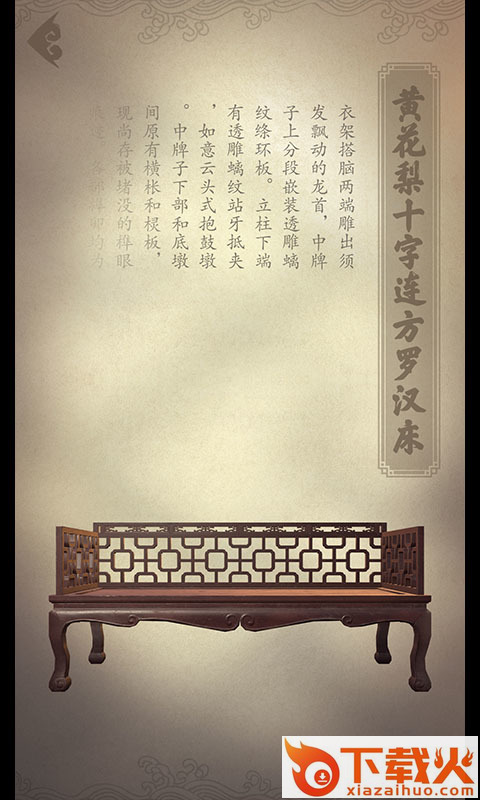 黄花梨十字连方罗汉床
衣架搭脑两端雕出须
发飘动的龙首，中牌
子上分段嵌装透雕螭
纹绦环板。立柱下端
有透雕螭纹站牙抵夹
，如意云头式抱鼓墩
。中牌子下部和底墩
间原有横枨和棂板，
现尚存被堵没的榫眼
下载火
xiazaihuo.com